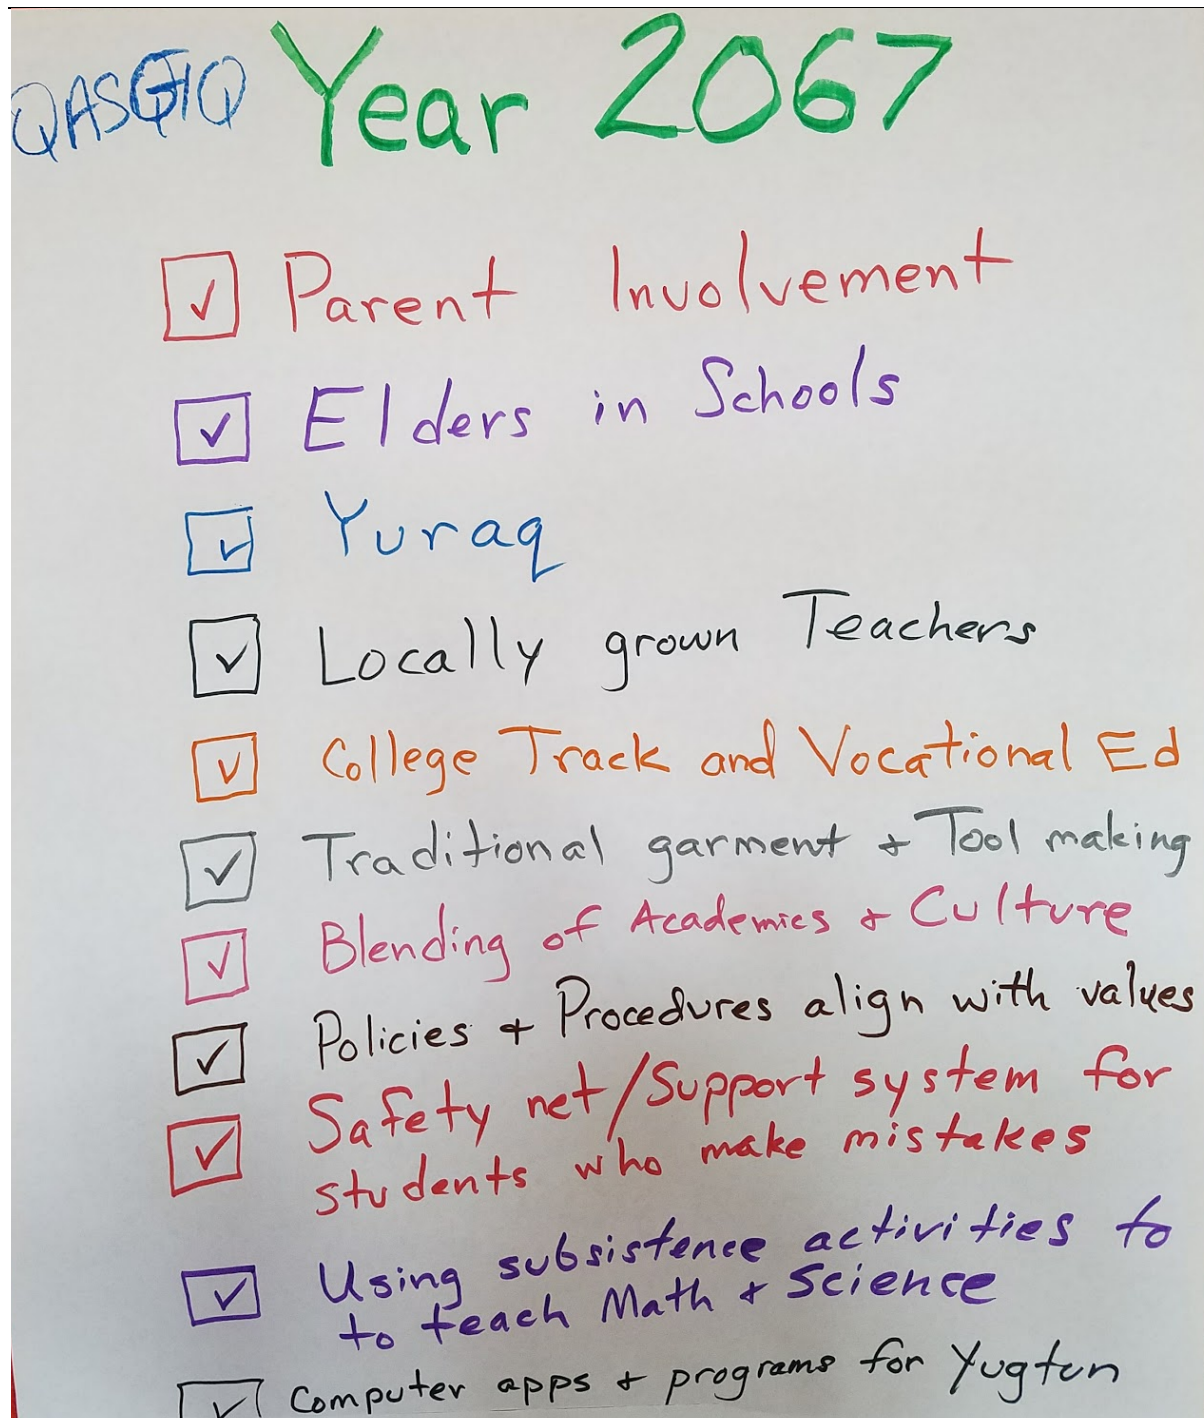 QASGIQ Year 2067
Parent Involvement
Elders in Schools
Yuraq
Locally grown Teachers
College Track and Vocational Ed
Traditional garment + Tool making
Blending of Academics + Culture
Policies + Procedures align with values
Safety net/Support system for
students who make mistakes
Using subsistence activities to
to teach Math + Science
Computer apps + programs for Yugtun